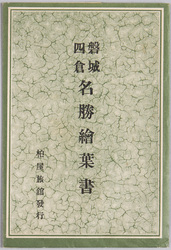 磐城
四倉
名勝繪葉書
柏屋旅館發行